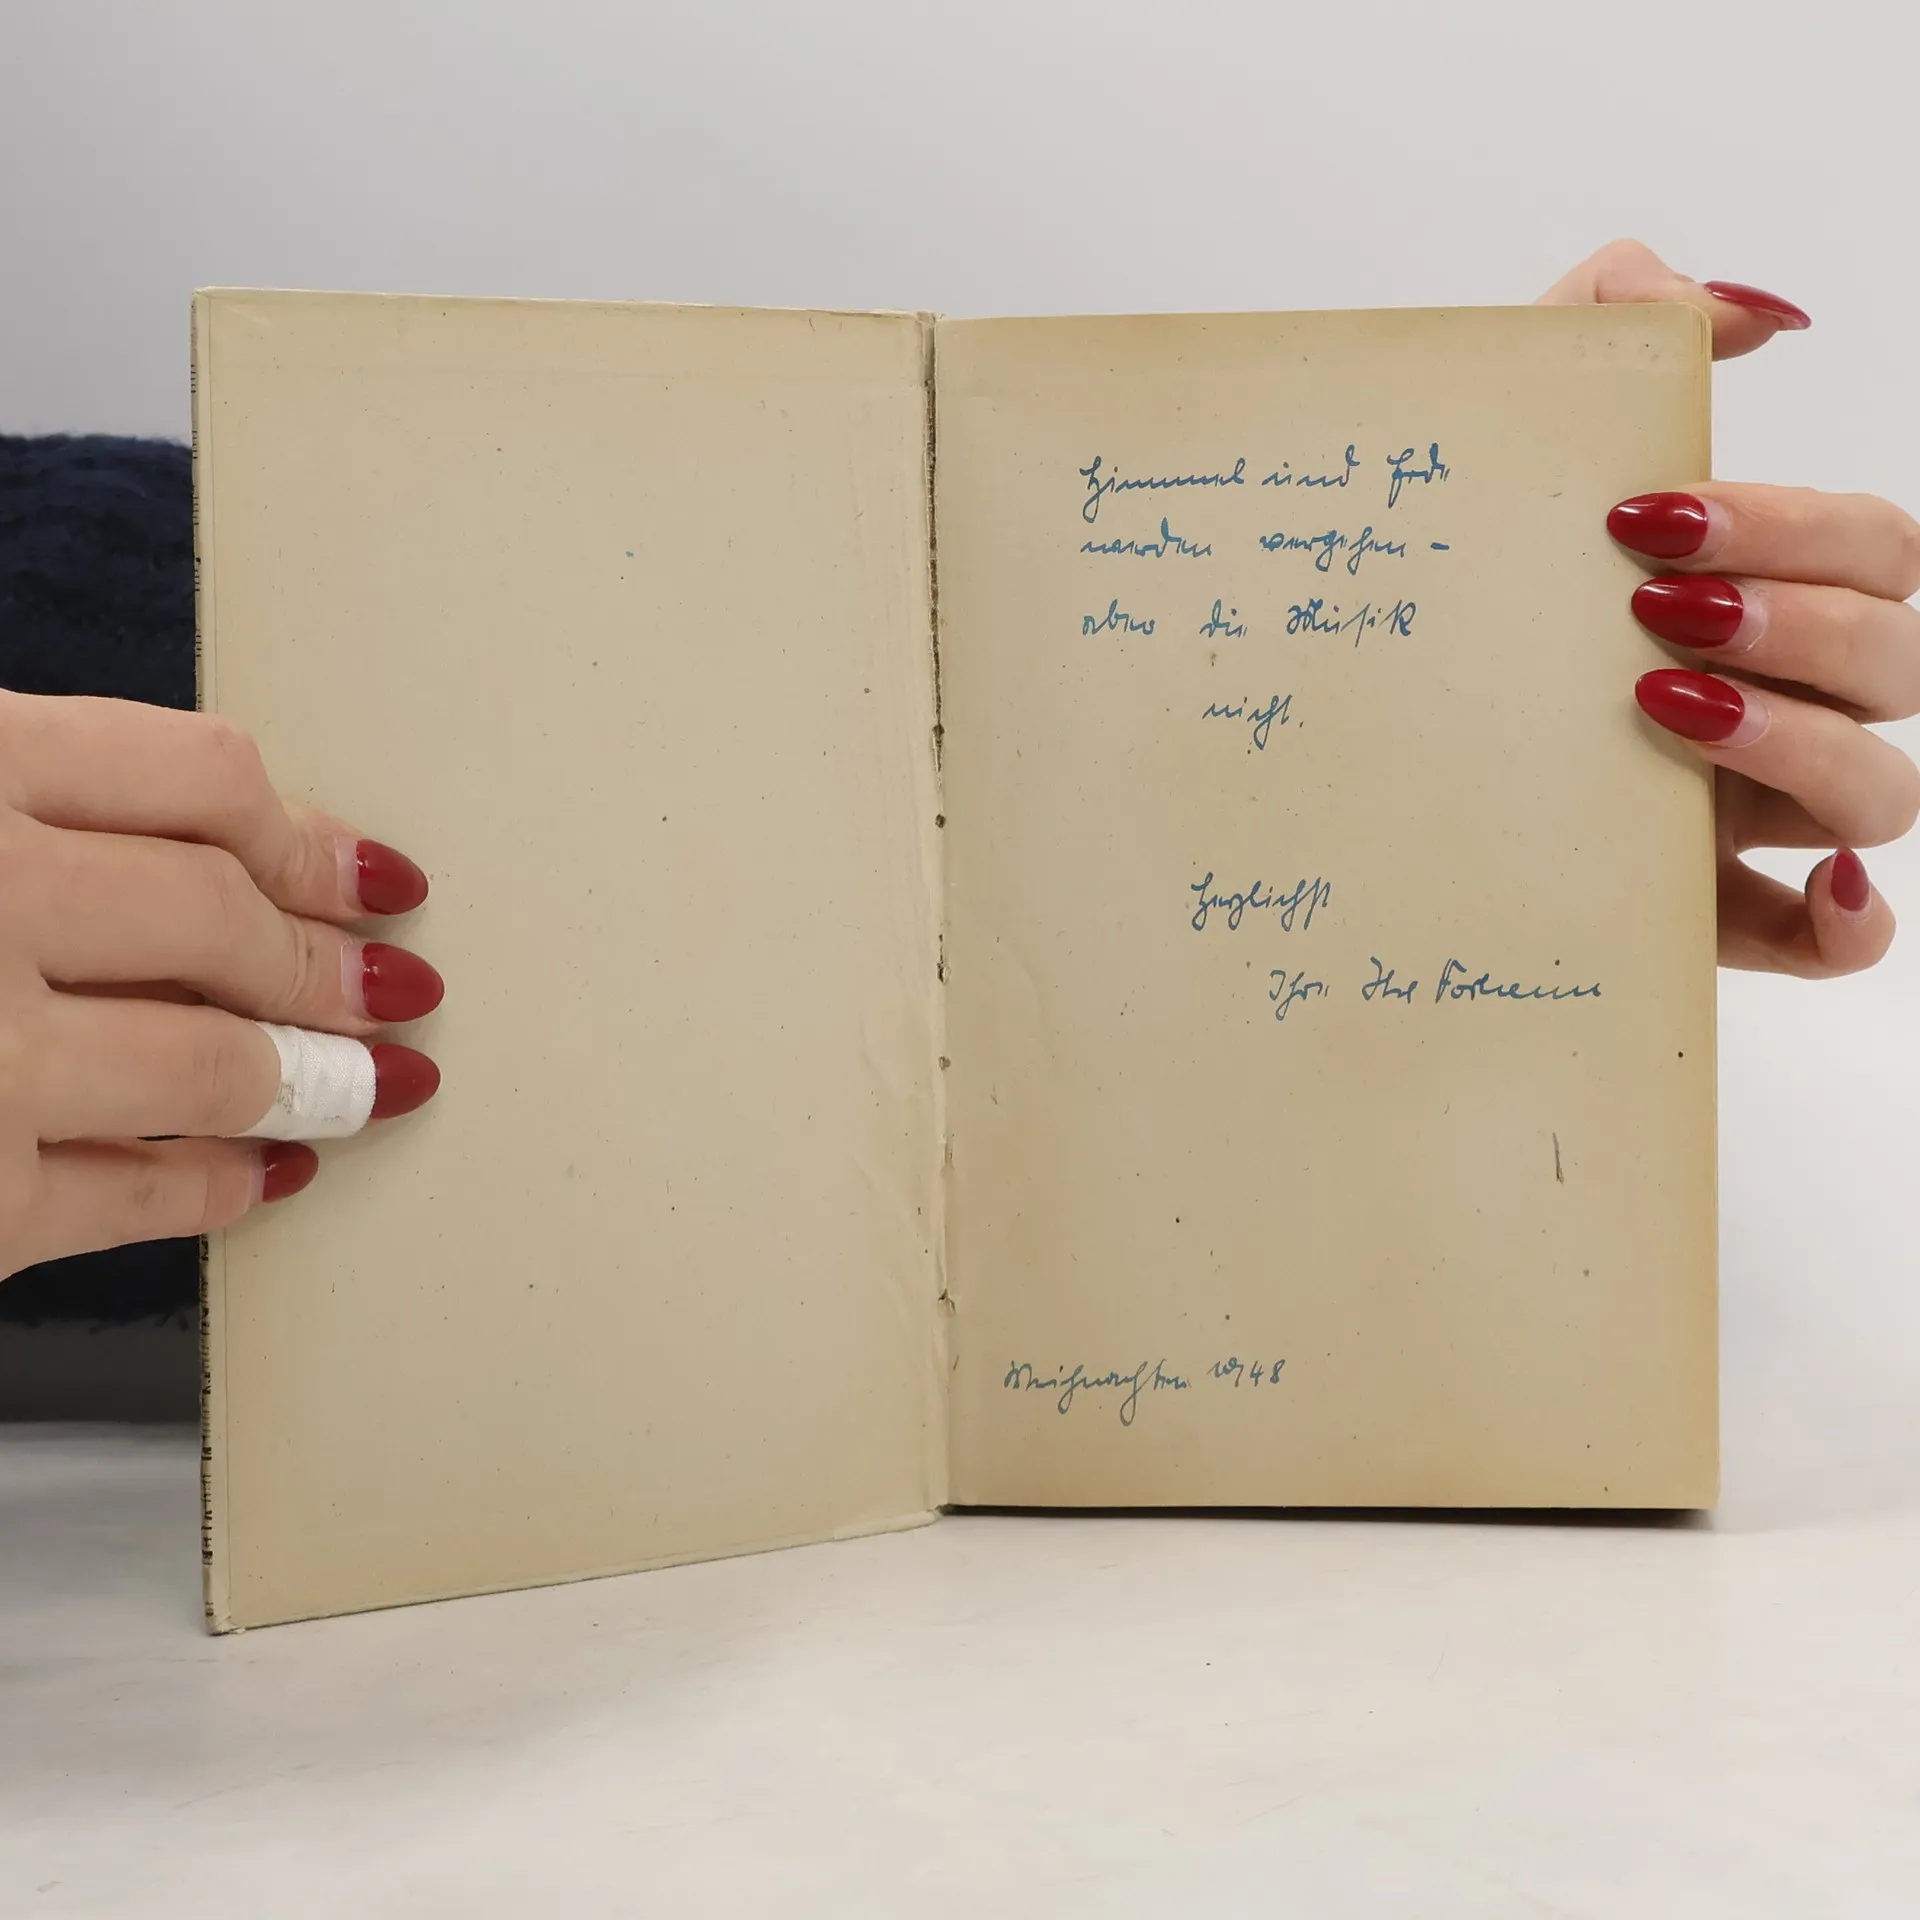 Himmel und Erde
werden vergehen –
aber die Musik
nicht.
Herzlichst
Ihre
Weihnachten 1948